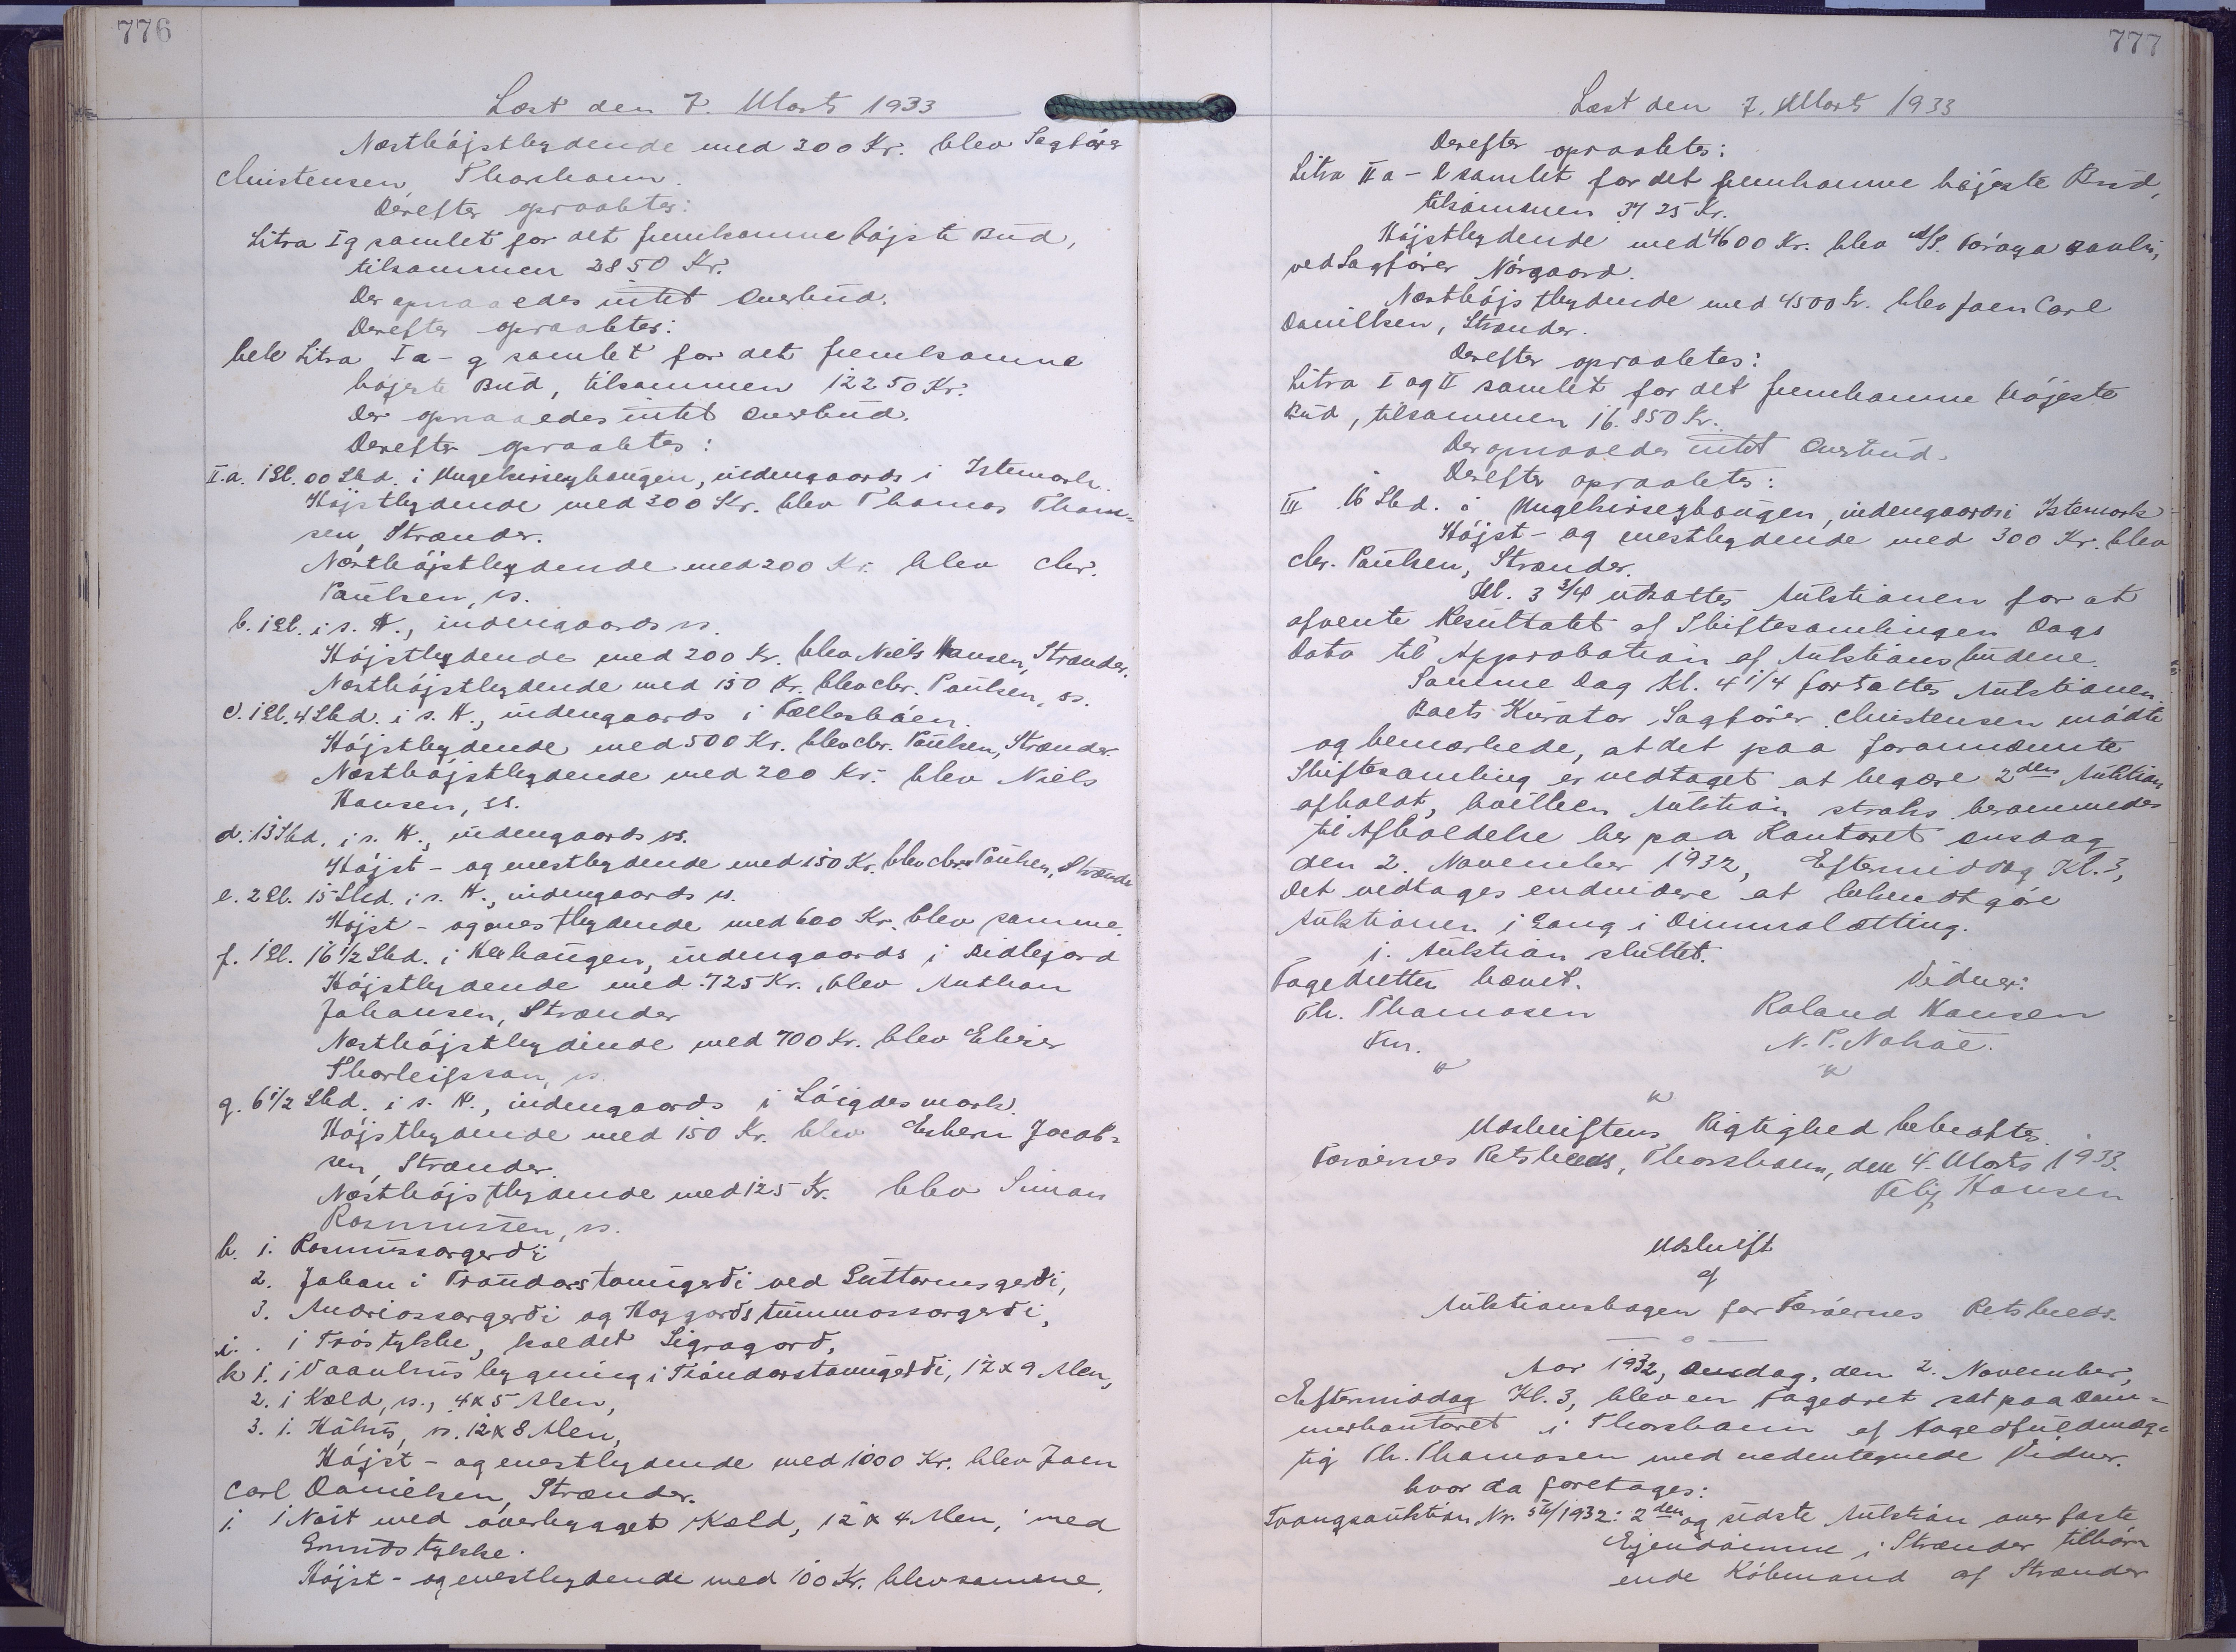 776
Læst den 7. Marts 1933
Næsthöjstbydende med 200 Kr. blev Sagförer
Christensen, Thorshavn.
Derefter opraabtes:
Litra I g samlet for det fremkomne höjste Bud,
tilsammen 2850 Kr.
Der opnaaedes intet Overbud.
Derefter opraabtes:
hele Litra I a - g samlet for det fremkomne
höjeste Bud, tilsammen 12250 Kr.
Der opnaaedes intet Overbud.
Derefter opraabtes:
II.a. 1 Gl. 00 Skd. i indengaards i Istemork.
Höjstbydende med 300 Kr. blev Thomas Thom-
sen, Strænder.
Næsthöjstbydende med 200 Kr. blev Chr.
Paulsen, ss.
b. 1 Gl. i s. H., indengaards ss.
Höjstbydende med 200 Kr. blev Niels Hansen, Strænder.
Næsthöjstbydende med 150 Kr. blev Chr. Paulsen, ss.
c. 1 Gl. 4 Skd. i s. H., indengaards i Fællesböen.
Höjstbydende med 500 Kr. blev Chr. Paulsen, Strænder.
Næsthöjstbydende med 200 Kr. blev Niels
Hansen, ss.
d. 13 Skd. i s. H., indengaards ss.
Höjst- og enestbydende med 150 Kr. blev Chr. Paulsen, Strænder
e. 2 Gl. 15 Skd. i s. H., indengaards ss.
Höjst- og enestbydende med 600 Kr. blev samme.
f. 1 Gl. 16 1/2 Skd. i indengaards i
Höjstbydende med 725 Kr. blev Anthon
Johansen, Strænder
Næsthöjstbydende med 700 Kr. blev
Thorleifsson, ss.
g. 6 1/2 Skd. i s. H., indengaards i Löigdesmork.
Höjstbydende med 150 Kr. blev Esbern Jacob-
sen, Strænder.
Næsthöjstbydende med 125 Kr. blev Simon
Rasmussen, ss.
h. 1. Rasmussargerði
2. Johan i Trondarstovugerði ved
3. Andriassargerði og
i. i Tröstykke, kaldet Sigragorð,
k 1. i Vaanhusbygning i Trondarstovugerði, 12 x 9 Alen,
2. i Kæld, ss., 4 x 5 Alen,
3. i. ss. 12 x 8 Alen,
Höjst- og enestbydende med 1000 Kr. blev Joen
Carl Danielsen, Strænder.
j. 1 Nöst med overbygget Kæld, 12 x 4 Alen, med
Grundstykke.
Höjst- og enestbydende med 100 Kr. blev samme.
777
Læst den 7. Marts 1933
Derefter opraabtes:
Litra II a - l samlet for det fremkomne höjeste Bud,
tilsammen 3425 Kr.
Höjstbydende med 4600 Kr. blev A/S. Föroya Banki,
ved Sagförer Nörgaard.
Næsthöjstbydende med 4500 Kr. blev Joen Carl
Danielsen, Strænder.
Derefter opraabtes:
Litra I og II samlet for det fremkomne höjeste
Bud, tilsammen 16.850 Kr.
Der opnaaedes intet Overbud.
Derefter opraabtes:
III 16 Skd. i indengaards i Istemork
Höjst- og enestbydende med 300 Kr. blev
Chr. Paulsen, Strænder.
Kl. 3 3/4 udsattes Auktionen for at
afvente Resultatet af Skiftesamlingen Dags
Dato til Approbation af Auktionsbudene.
Samme Dag Kl. 4 1/4 fortsattes Auktionen.
Boets Kurator Sagförer Christensen mödte
og bemærkede, at det paa forannævnte
Skiftesamling er vedtaget at begære 2den Auktion
afholdt, hvilken Auktion straks berammedes
til Afholdelse her paa Kontoret onsdag
den 2. November 1932, Eftermiddag Kl. 3,
Det vedtages endvidere at bekendtgöre
Auktionen 1 Gang i Dimmalætting.
1. Auktion sluttet.
Fogedretten hævet.
Vidner:
Th. Thomasen
Roland Hansen
Fm.
N. P. Nohæe.
Udskriftens Rigtighed bekræftes.
Færöernes Retskreds, Thorshavn, den 4. Marts 1933.
Hansen
Udskrift
af
Auktionsbogen for Færöernes Retskreds.
Aar 1932, onsdag, den 2. November,
Eftermiddag Kl. 3, blev en Fogedret sat paa Dom-
merkontoret i Thorshavn af Fogedfuldmæg-
tig Th. Thomasen med nedentegnede Vidner.
hvor da foretages:
Tvangsauktion Nr. 56/1932: 2den og sidste Auktion over faste
Ejendomme i Strænder tilhör
ende Köbmand af Strænder